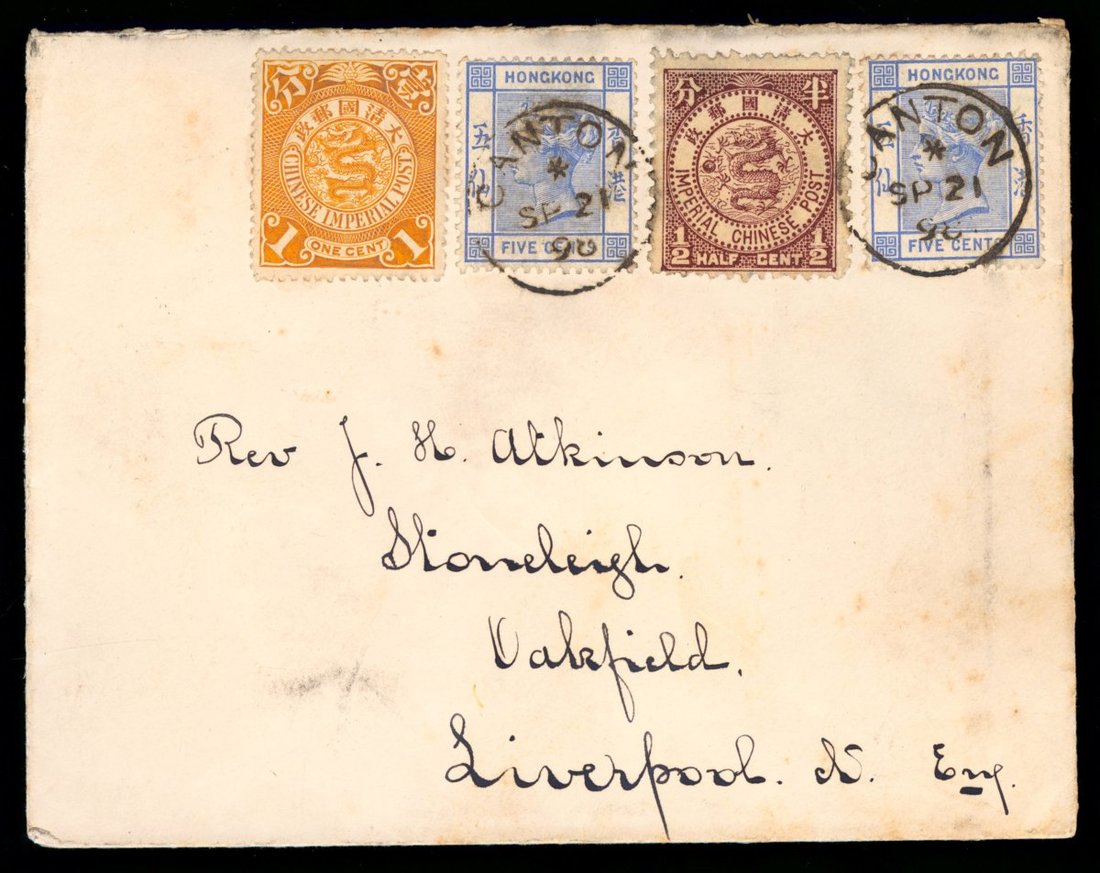 壹 分
大清國郵政
CHINESE IMPERIAL POST
1 ONE CENT 1
HONGKONG
香港
五仙
FIVE CENTS
CANTON
*
SP 21
98
半 分
大清國郵政
IMPERIAL CHINESE POST
1/2 HALF CENT 1/2
HONGKONG
香港
五仙
FIVE CENTS
CANTON
*
SP 21
98
Rev J. H. Atkinson.
Stoneleigh.
Oakfield.
Liverpool. N. Eng.